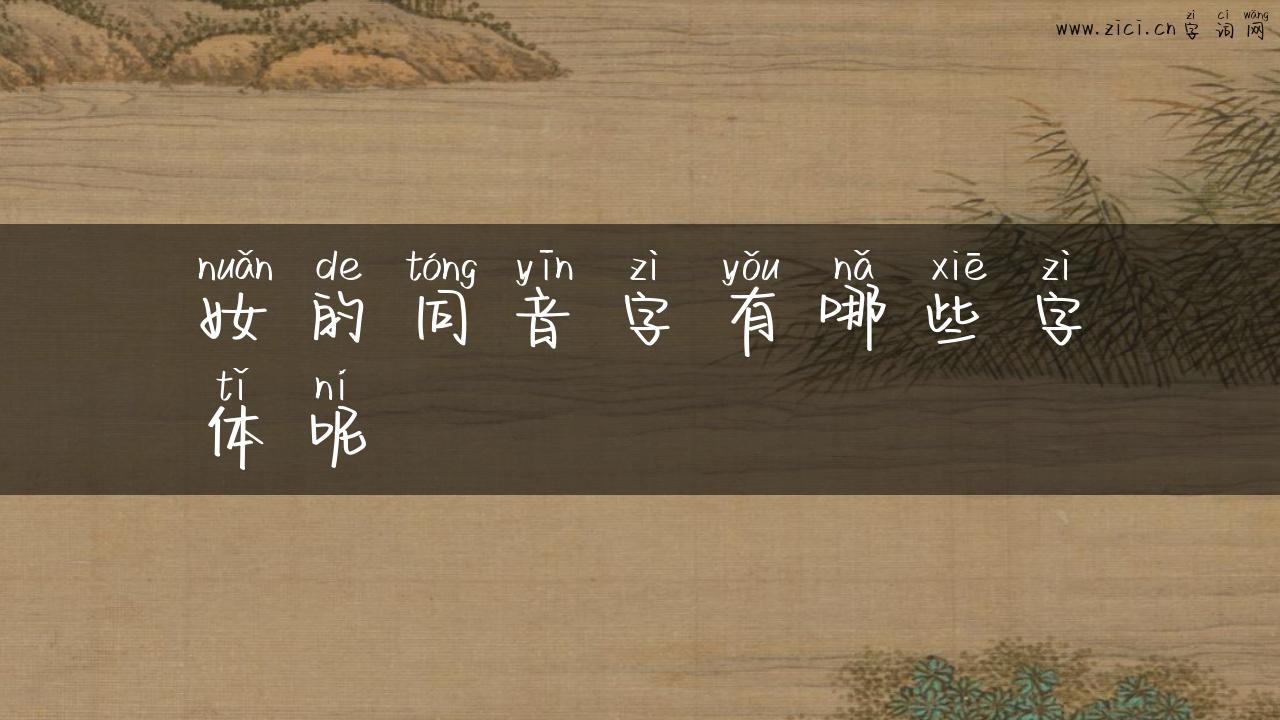 zì cí wǎng
www.zici.cn 字词网
nuǎn de tóng yīn zì yǒu nǎ xiē zì
奻的同音字有哪些字
tǐ ní
体呢